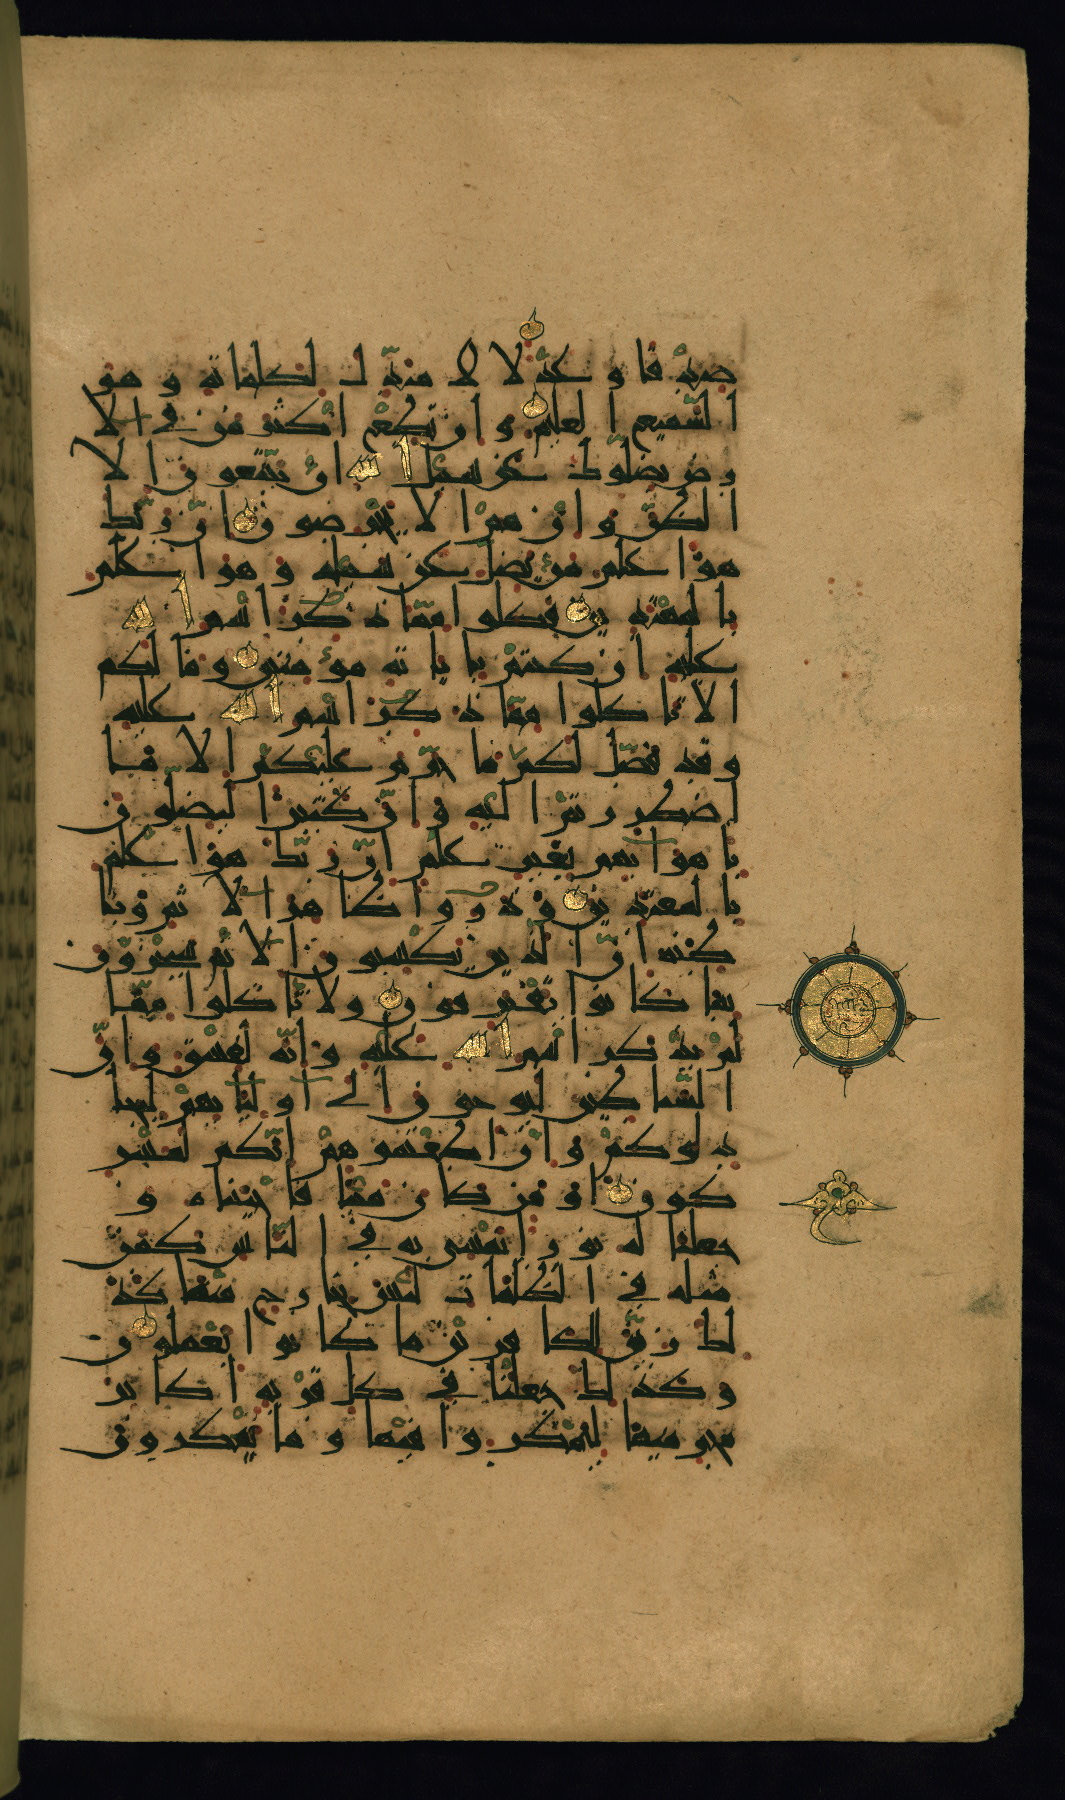 صدقا وعدلا لا مبدل لكلماته وهو
السميع العليم وان تطع اكثر من في الا
رض يضلوك عن سبيل الله ان يتبعون الا
الظن وان هم الا يخرصون ان ربك
هو اعلم من يضل عن سبيله وهو اعلم
بالمهتدين فكلوا مما ذكر اسم الله
عليه ان كنتم باياته مؤمنين وما لكم
الا تاكلوا مما ذكر اسم الله عليه
وقد فصل لكم ما حرم عليكم الا ما
اضطررتم اليه وان كثيرا ليضلون
باهوائهم بغير علم ان ربك هو اعلم
بالمعتدين وذروا ظاهر الا ثم وبا
طنه ان الذين يكسبون الا ثم سيجزون
بما كانوا يقترفون ولا تاكلوا مما
لم يذكر اسم الله عليه وانه لفسق وان
الشياطين ليوحون الى اوليائهم ليجا
دلوكم وان اطعتموهم انكم لمشر
كون اومن كان ميتا فاحييناه و
جعلنا له نورا يمشي به في الناس كمن
مثله في الظلمات ليس بخارج منها كذ
لك زين للكافرين ما كانوا يعملون
وكذلك جعلنا في كل قرية اكابر
مجرميها ليمكروا فيها وما يمكرون